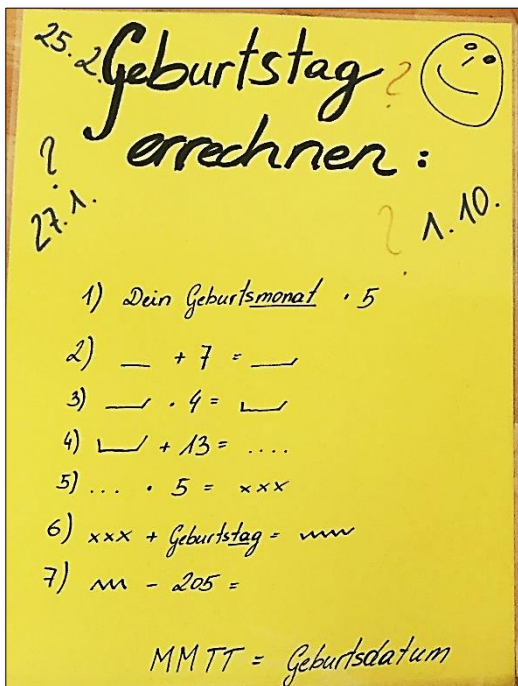 25.2.
Geburtstag ?
errechnen :
?
27.1.
? 1.10.
1) Dein Geburtsmonat · 5
2) __ + 7 = __
3) __ · 4 = __
4) __ + 13 = ....
5) ... · 5 = xxx
6) xxx + Geburtstag = ~~~
7) ~~~ - 205 =
MMTT = Geburtsdatum